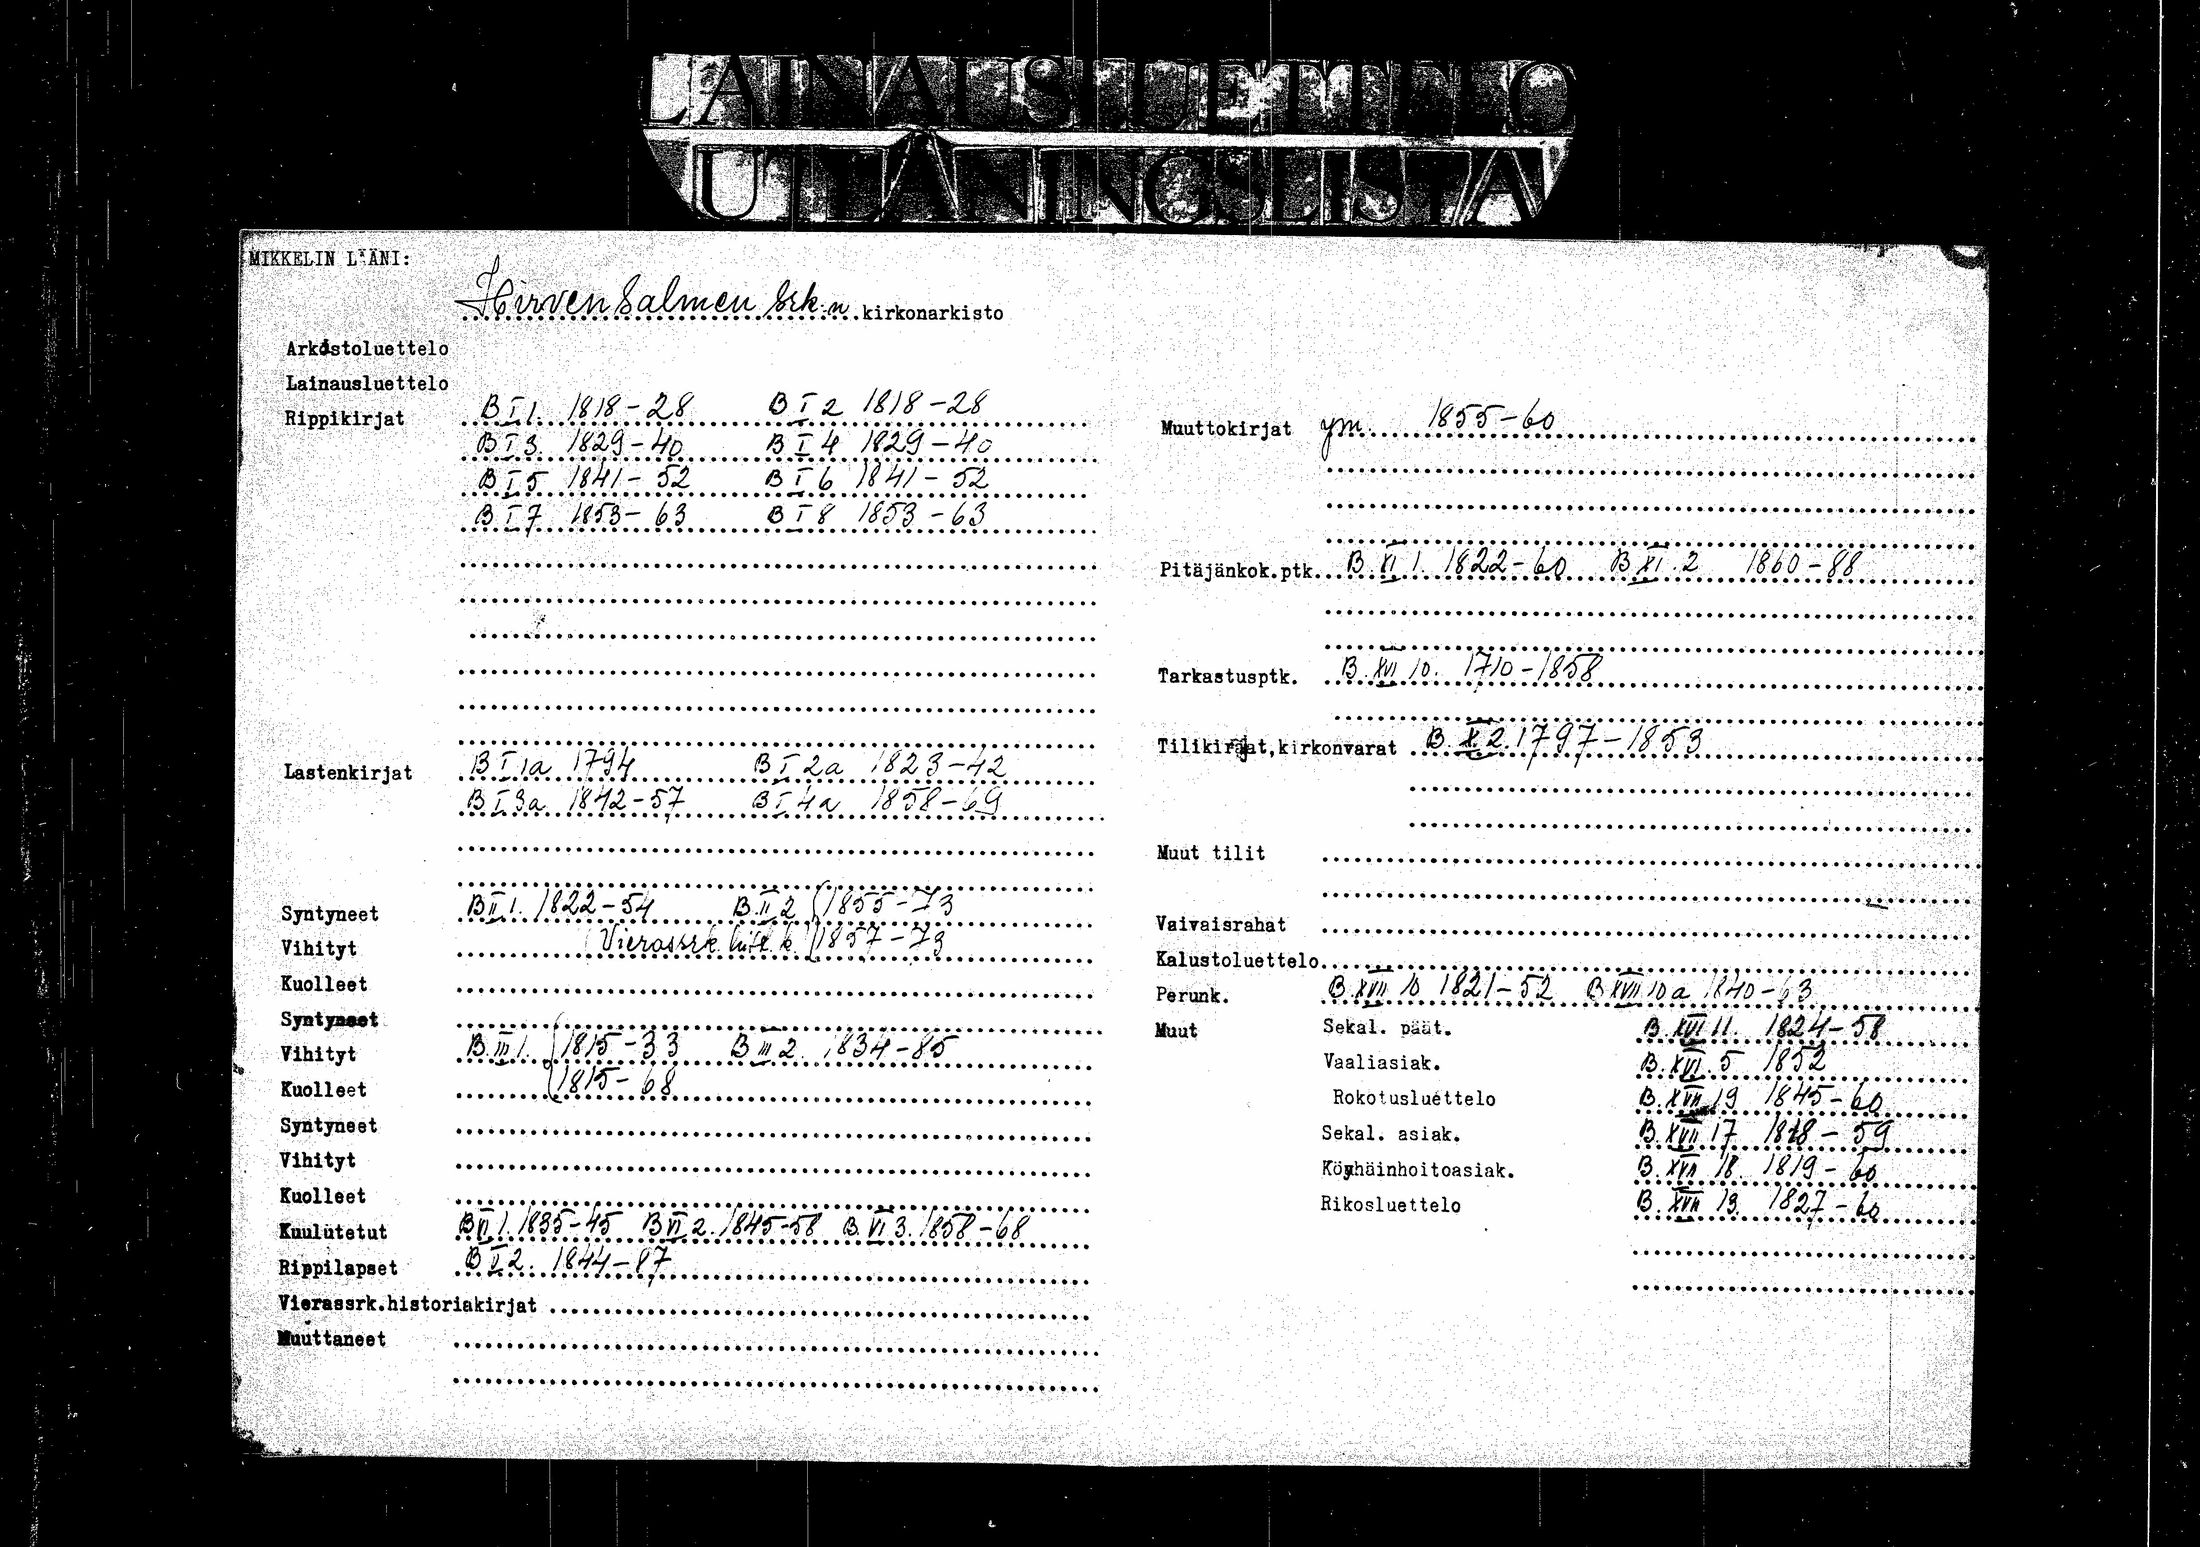 LAINAUSLUETTELO
UTLÅNINGSLISTA
MIKKELIN LÄÄNI:
Hirvensalmen Srk:n kirkonarkisto
Arkistoluettelo
Lainausluettelo
Rippikirjat B I 1. 1818-28 B I 2 1818-28
B I 3. 1829-40 B I 4 1829-40
B I 5 1841-52 B I 6 1841-52
B I 7 1853-63 B I 8 1853-63
Lastenkirjat B I 1a 1794 B I 2a 1823-42
B I 3a 1842-57 B I 4a 1858-69
Syntyneet B II 1. 1822-54 B II 2 (1855-73
Vihityt (Vierassrk. k. (1857-73
Kuolleet
Syntyneet
Vihityt B III 1. (1815-33 B III 2. 1834-85
Kuolleet (1815-68
Syntyneet
Vihityt
Kuolleet
Kuulutetut B VI 1. 1835-45 B VI 2. 1845-58 B. VI 3. 1858-68
Rippilapset B I 2. 1844-87
Vierassrk.historiakirjat
Muuttaneet
Muuttokirjat ym. 1855-60
Pitäjänkok.ptk. B. XI 1. 1822-60 B XI. 2 1860-88
Tarkastusptk. B. XVI 10. 1710-1858
Tilikirjat,kirkonvarat B. X 2. 1797-1853
Muut tilit
Vaivaisrahat
Kalustoluettelo
Perunk. B. XVII 10 1821-52 B XVII 10a 1840-63
Muut Sekal. päät. B. XVI 11. 1824-58
Vaaliasiak. B. XVI. 5 1852
Rokotusluettelo B. XVII 19 1845-60
Sekal. asiak. B. XVII 17 1818-59
Köyhäinhoitoasiak. B. XVII 18. 1819-60
Rikosluettelo B. XVII 13. 1827-60